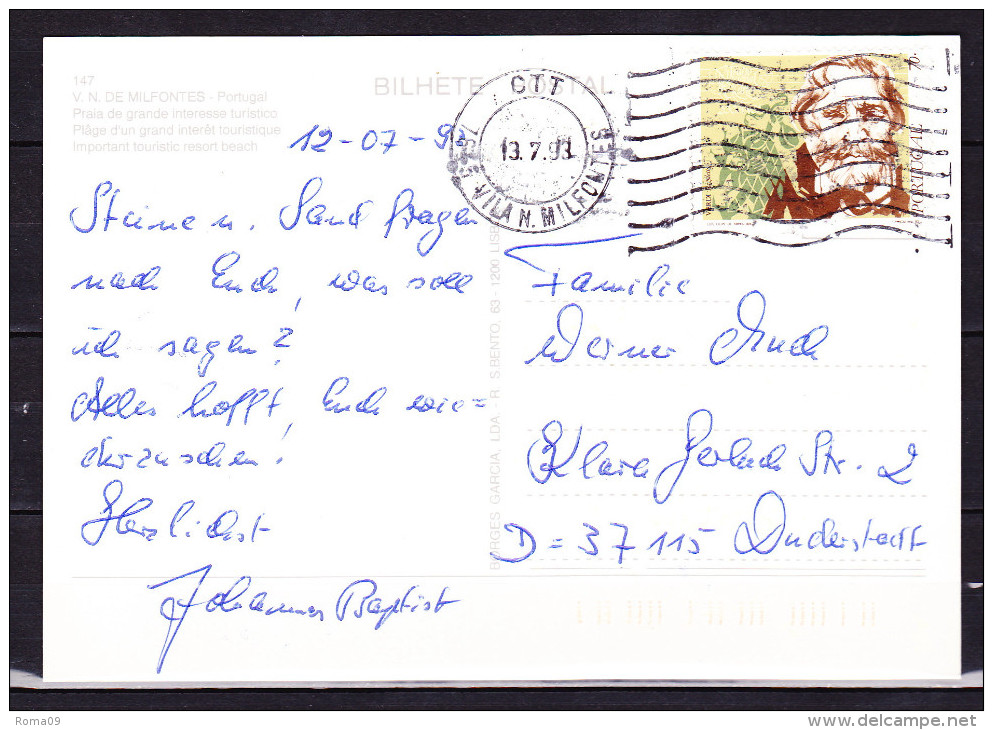 147
V. N. DE MILFONTES - Portugal
Praia de grande interesse turístico
Plâge d'un grand interêt touristique
Important touristic resort beach
BILHETE POSTAL
CTT
13.7.93
VILA N. MILFONTES
PORTUGAL
12-07-93
Steine u. Sand fragen
nach Euch, was soll
ich sagen?
Alles hofft, Euch wie=
derzusehen!
Herzlichst
Johannes Baptist
BORGES GARCIA, LDA. - R. S.BENTO, 63 - 1200 LISB
Familie
Werner
Klara Gerlach Str. 2
D = 37115 Duderstadt
Roma09
www.delcampe.net